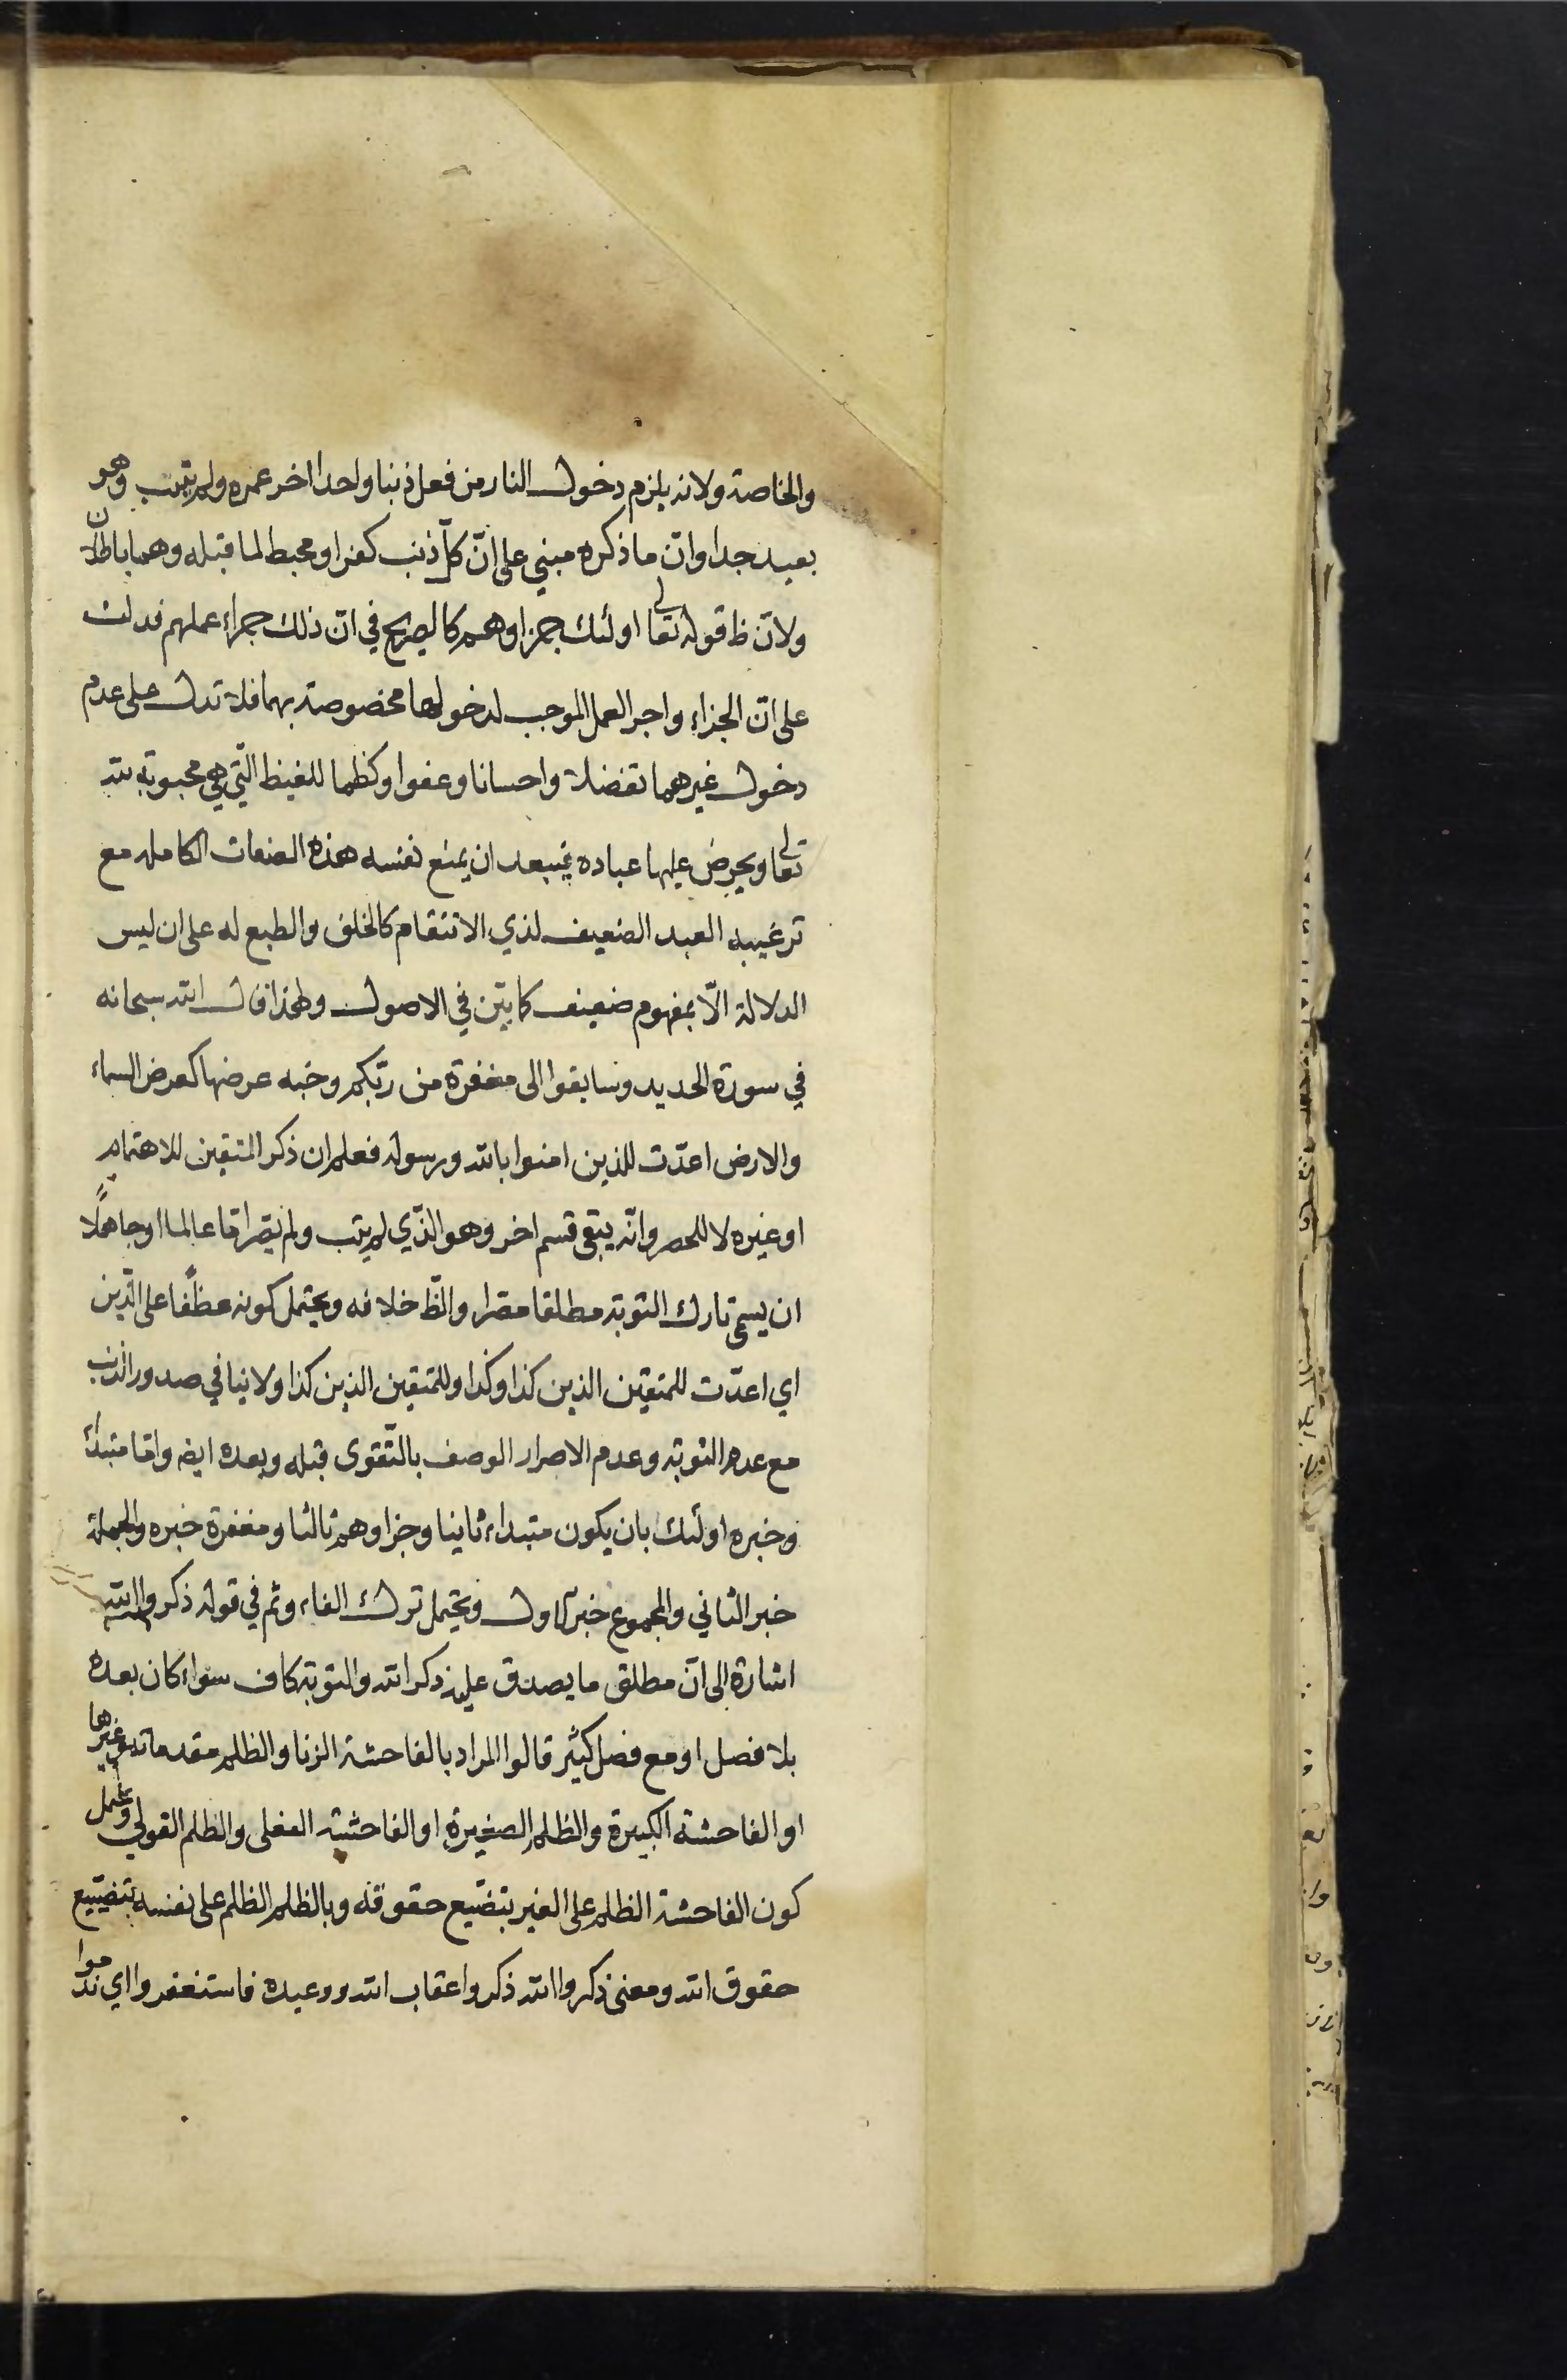 والخاصة ولانه يلزم دخول النار من فعل ذنبا واحدا اخر عمره ولم يتب وهو
بعيد جدا وانّ ما ذكره مبني على انّ كلّ ذنب كفرا ومحبط لما قبله وهما باطلان
ولانّ ظ قوله تعالى اولئك جزاوهم كالصريح في انّ ذلك جزاء عملهم فدلت
على انّ الجزاء واجر العمل الموجب لدخولها مخصوصة بهما فلا تدل على عدم
دخول غيرهما تفضلا واحسانا وعفوا وكظما للغيظ الّتي هي محبوبة لله
تعالى ويحرض عليها عباده فيبعد ان يمنع نفسه هذه الصفات الكامله مع
ترغيبه العبد الضعيف لذي الانتقام كالخلق والطبع له على ان ليس
الدلالة الّا بمفهوم ضعيف كما بيّن في الاصول ولهذا قال الله سبحانه
في سورة الحديد وسابقوا الى مغفرة من ربّكم وجنه عرضها كعرض السماء
والارض اعدّت للذين امنوا بالله ورسوله فعلم ان ذكر المتقين للاهتمام
او غيره لا للحصر وانّه يبقى قسم اخر وهو الذّي لم يتب ولم يصرّ امّا عالما او جاهلًا
ان يسمّى تارك التوبة مطلقا مصرا والظّ خلافه ويحتمل كونه عطفًا على الّذين
اي اعدّت للمتقين الذين كذا وكذا وللمتقين الذين كذا ولا ينافي صدور الذنب
مع عدم التوبة وعدم الاصرار الوصف بالتّقوى قبله وبعده ايضه وامّا مبتدأ
وخبره اولئك بان يكون مبتداء ثانيا وجزاوهم ثالثا ومغفرة خبره والجملة
خبر الثاني والمجموع خبر الاول ويحتمل ترك الفاء وثم في قوله ذكروا الله
اشارة الى انّ مطلق ما يصدق عليه ذكر الله والتوبة كاف سواء كان بعده
بلا فصل او مع فصل كثير قالوا المراد بالفاحشة الزنا والظلم مقدماته وغيرها
او الفاحشة الكبيرة والظلم الصغيرة او الفاحشة الفعلى والظلم القولي ويحتمل
كون الفاحشة الظلم على الغير بتضّيع حقوقه وبالظلم الظلم على نفسه بتضّييع
حقوق الله ومعنى ذكروا الله ذكروا عقاب الله ووعيده فاستغفروا اي ندموا